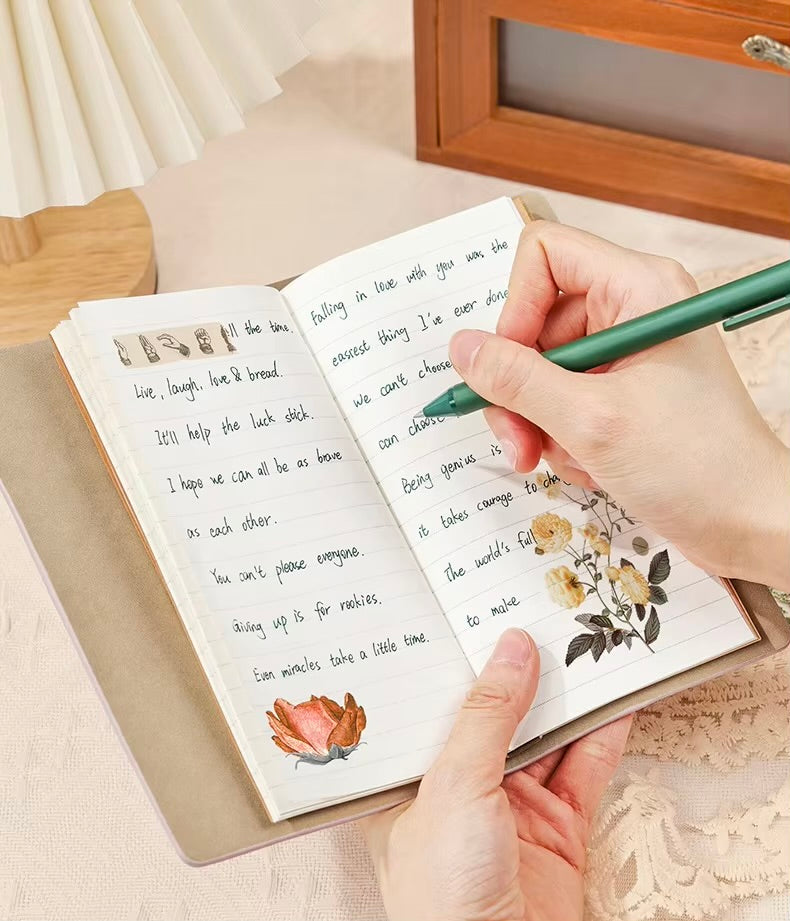 the time.
Live, laugh, love & bread.
It'll help the luck stick.
I hope we can all be as brave
as each other.
You can't please everyone.
Giving up is for rookies.
Even miracles take a little time.
Falling in love with you was the
easiest thing I've ever done
We can't choose
can choose
Being genius is
it takes courage to
The world's full
to make